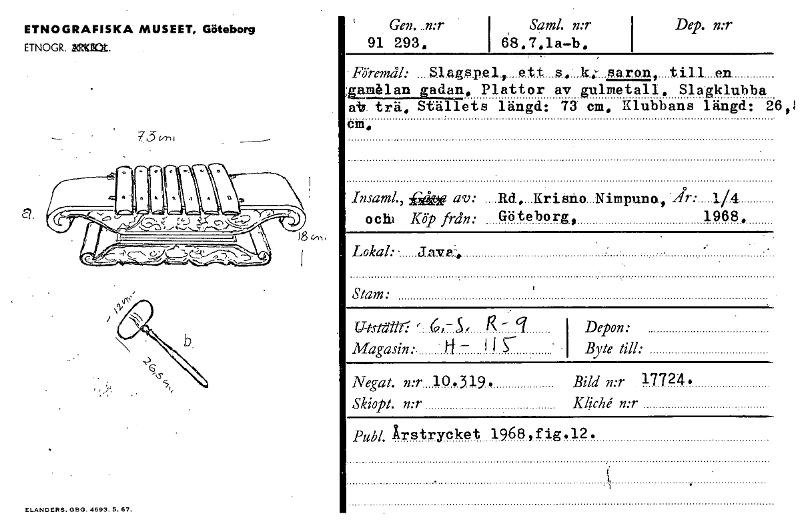 ETNOGRAFISKA MUSEET, Göteborg
ETNOGR.
73 cm
a.
18 cm
12 cm
b.
26,5 cm
ELANDERS, GBG. 4693. 5. 67.
Gen. n:r Saml. n:r Dep. n:r
91 293. 68.7.1a-b.
Föremål: Slagspel, ett s. k. saron, till en
gamelan gadan. Plattor av gulmetall. Slagklubba
av trä. Ställets längd: 73 cm. Klubbans längd: 26,5
cm.
Insaml., Gåva av: Rd. Krisno Nimpuno, År: 1/4
och Köp från: Göteborg, 1968.
Lokal: Java.
Stam:
Utställt: G.-S. R-9 Depon:
Magasin: H-115 Byte till:
Negat. n:r 10.319. Bild n:r 17724.
Skiopt. n:r Kliché n:r
Publ. Årstrycket 1968,fig.12.